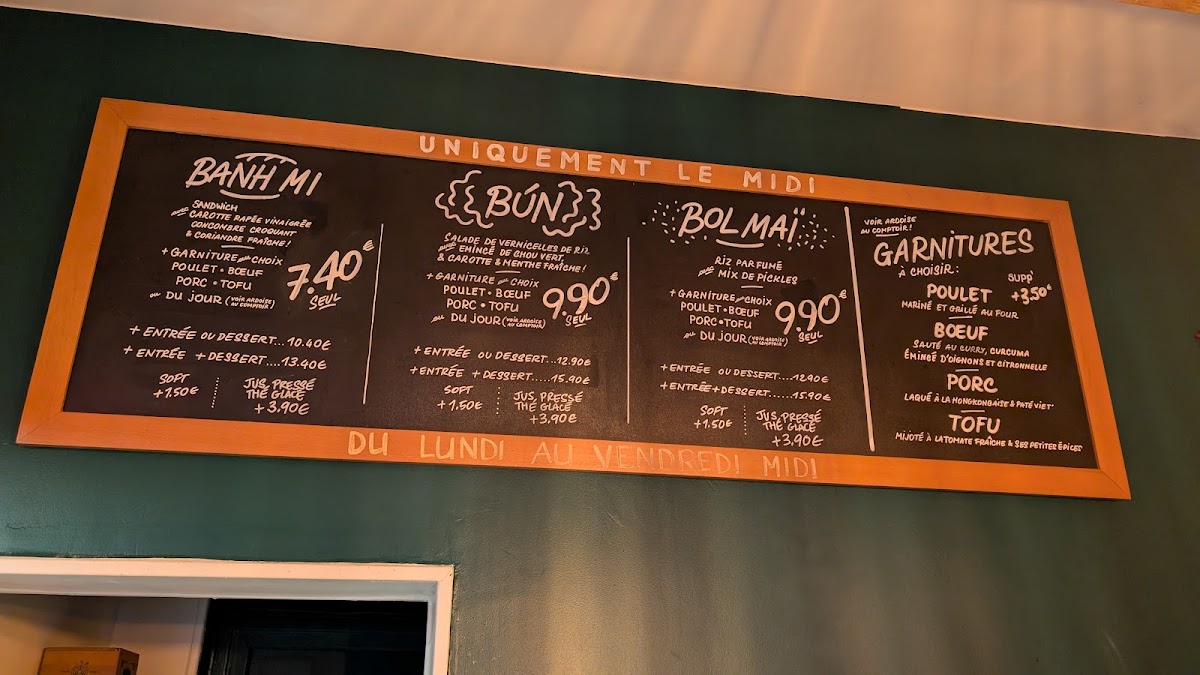 UNIQUEMENT LE MIDI
BANH MI
SANDWICH
AVEC CAROTTE RAPÉE VINAIGRÉE
CONCOMBRE CROQUANT
& CORIANDRE FRAÎCHE!
+ GARNITURE AU CHOIX
POULET • BŒUF
PORC • TOFU
OU DU JOUR (VOIR ARDOISE
AU COMPTOIR!)
7.40€
SEUL
+ ENTRÉE OU DESSERT...10.40€
+ ENTRÉE + DESSERT....13.40€
SOFT
+1,50€
JUS, PRESSÉ
THÉ GLACÉ
+3,90€
BÚN
SALADE DE VERNICELLES DE RIZ
AVEC ÉMINCÉ DE CHOU VERT,
& CAROTTE & MENTHE FRAÎCHE!
+ GARNITURE AU CHOIX
POULET • BŒUF
PORC • TOFU
OU DU JOUR (VOIR ARDOISE
AU COMPTOIR!)
9.90€
SEUL
+ ENTRÉE OU DESSERT...12.90€
+ ENTRÉE + DESSERT.....15.90€
SOFT
+1,50€
JUS, PRESSÉ
THÉ GLACÉ
+3,90€
BOL MAÏ
RIZ PARFUMÉ
AVEC MIX DE PICKLES
+ GARNITURE AU CHOIX
POULET • BŒUF
PORC • TOFU
OU DU JOUR (VOIR ARDOISE
AU COMPTOIR!)
9.90€
SEUL
+ ENTRÉE OU DESSERT....12.90€
+ ENTRÉE + DESSERT.....15.90€
SOFT
+1.50€
JUS, PRESSÉ
THÉ GLACÉ
+3,90€
VOIR ARDOISE
AU COMPTOIR!
GARNITURES
À CHOISIR:
SUPP'
+3,50€
POULET
MARINÉ ET GRILLÉ AU FOUR
BŒUF
SAUTÉ AU CURRY, CURCUMA
ÉMINCÉ D'OIGNONS ET CITRONNELLE
PORC
LAQUÉ À LA HONGKONGAISE & PATÉ VIET'
TOFU
MIJOTÉ À LA TOMATE FRAÎCHE & SES PETITES ÉPICES
DU LUNDI AU VENDREDI MIDI